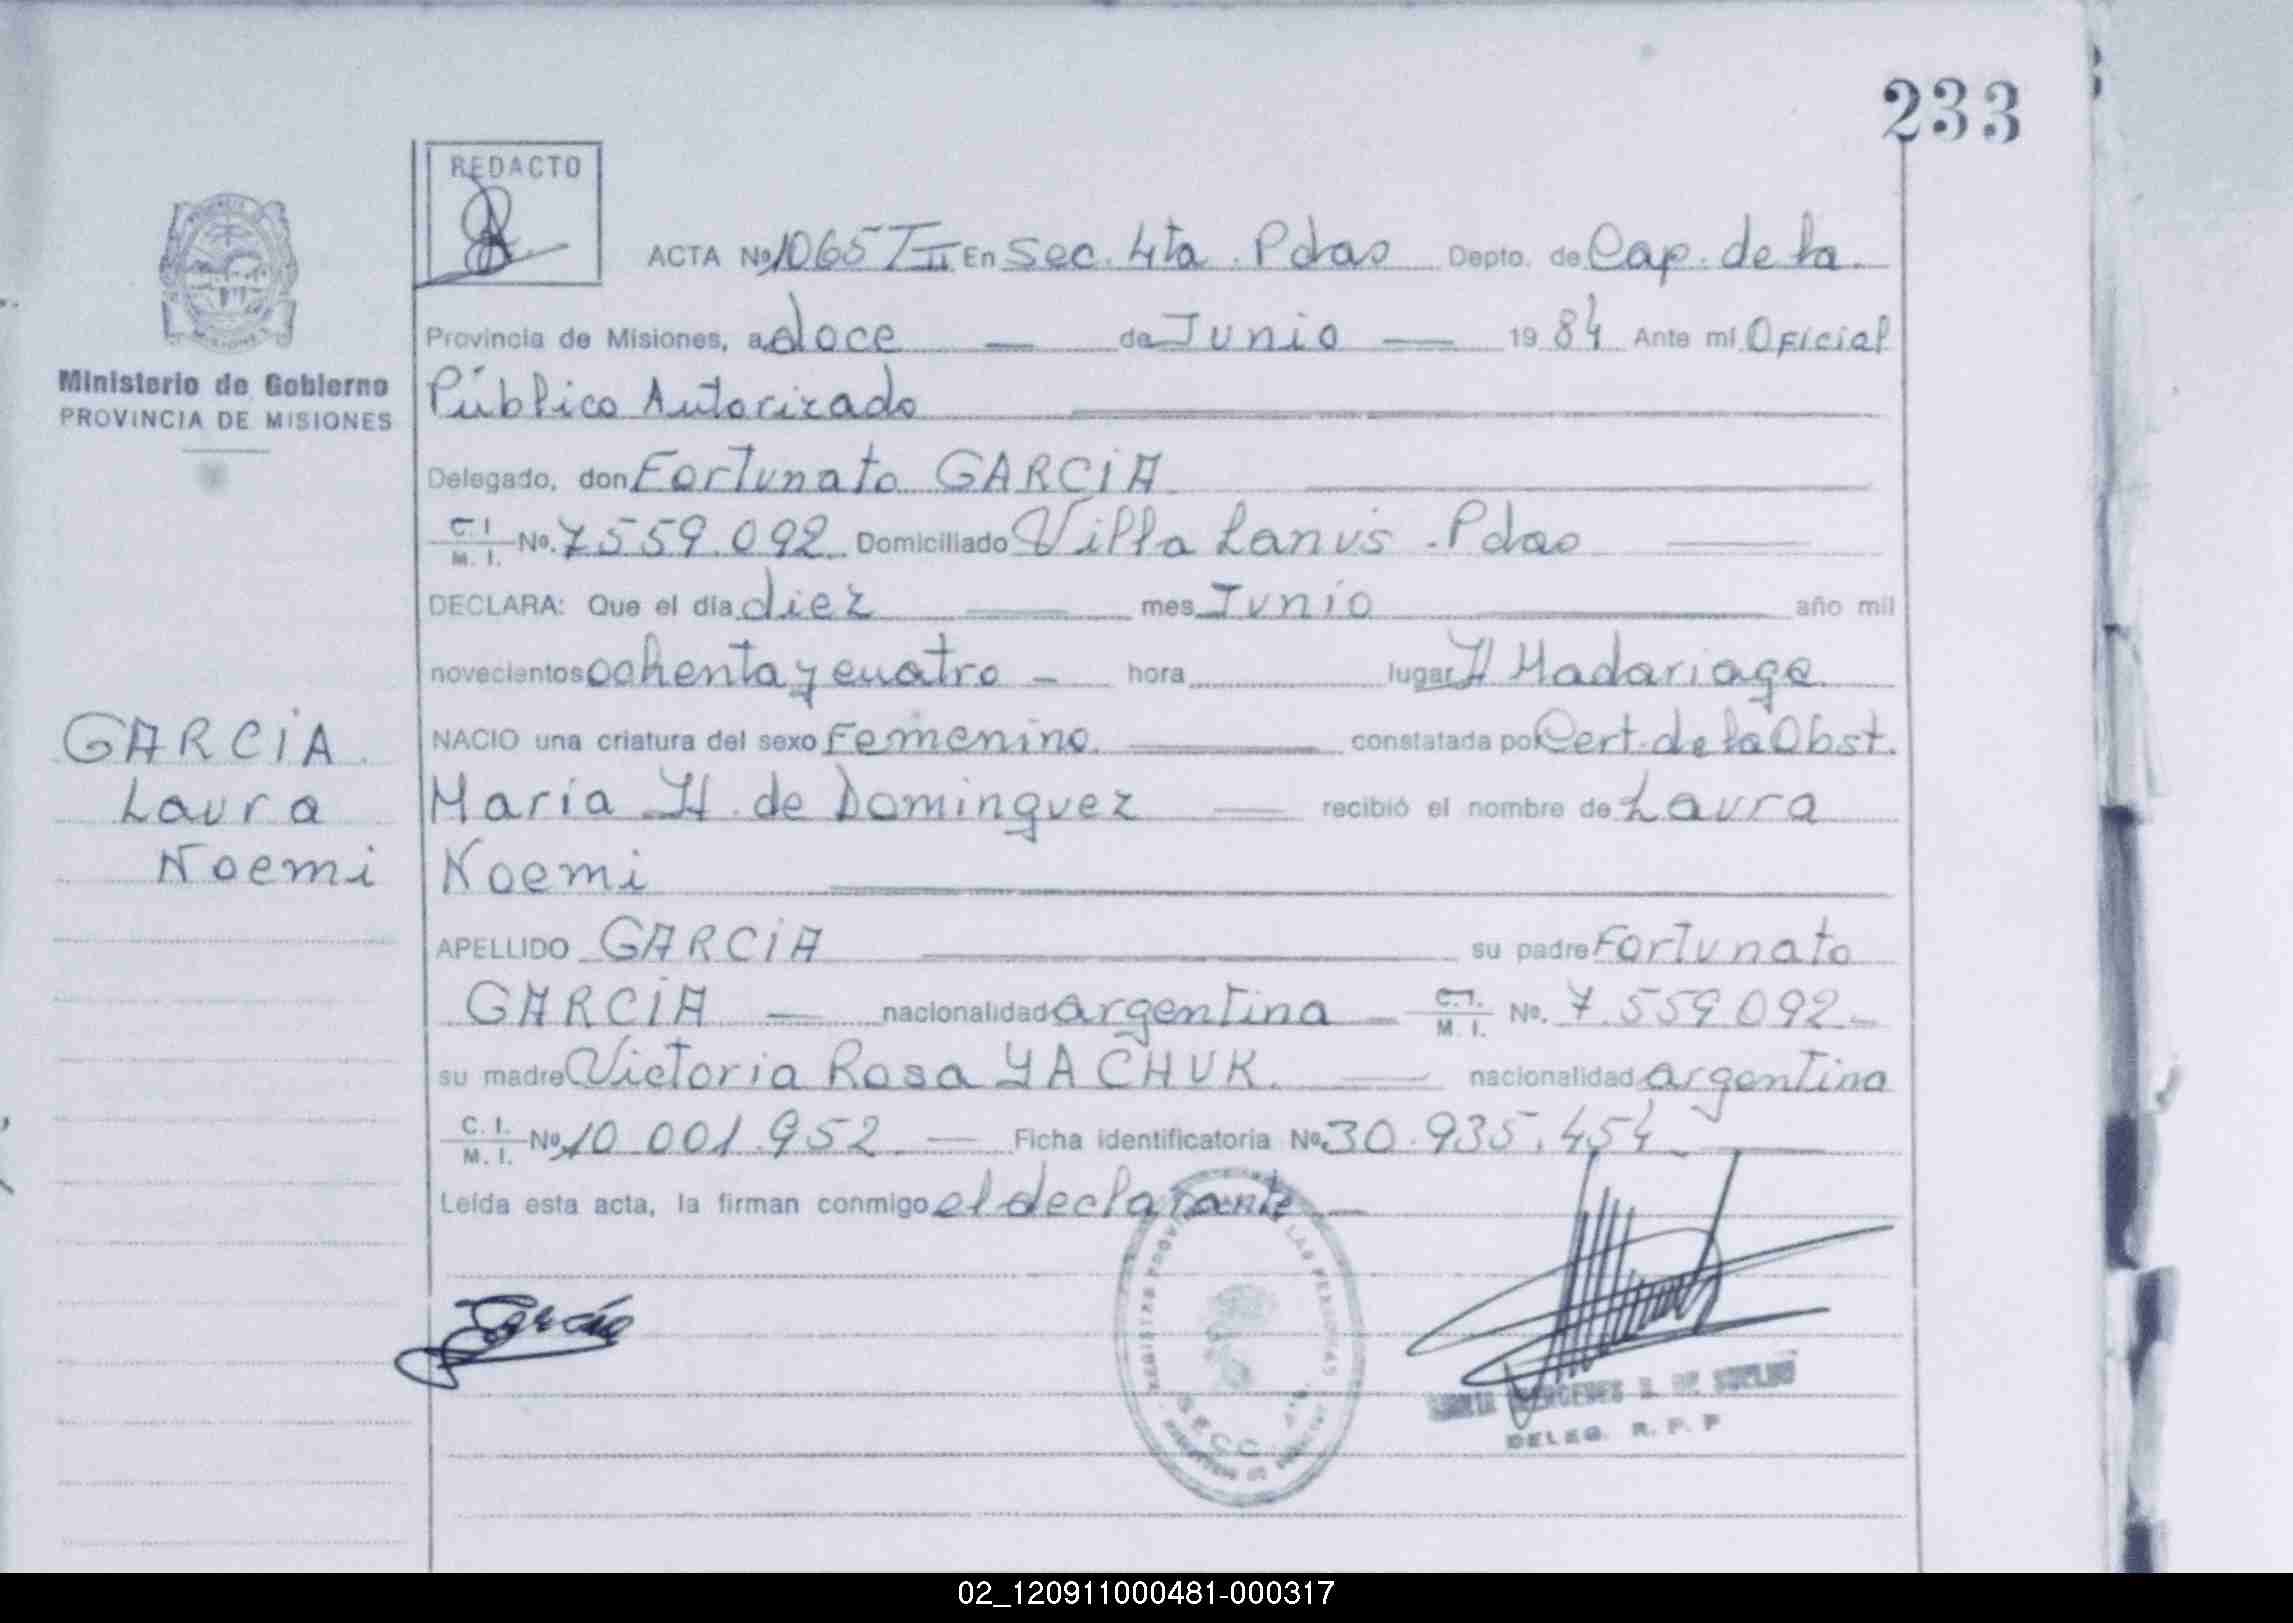 233
REDACTO
ACTA Nº 1065 T II En Sec. 4ta. Pdas Depto. de Cap. de la
Provincia de Misiones, a doce de Junio 1984 Ante mí Oficial
Ministerio de Gobierno
PROVINCIA DE MISIONES
Público Autorizado
Delegado, don Fortunato GARCIA
C. I. M. I. Nº. 7559.092 Domiciliado Villa Lanús. Pdas
DECLARA: Que el día diez mes Junio año mil
novecientos ochenta y cuatro hora lugar H Madariaga
GARCIA
Laura
Noemi
NACIO una criatura del sexo Femenino constatada por Cert. de la Obst.
María H. de Dominguez recibió el nombre de Laura
Noemi
APELLIDO GARCIA su padre Fortunato
GARCIA nacionalidad argentina C. I. M. I. Nº. 7.559.092
su madre Victoria Rosa YACHUK. nacionalidad argentina
C. I. M. I. Nº 10.001.952 Ficha identificatoria Nº 30.935.454
Leída esta acta, la firman conmigo el declarante
García
LAS PERSONAS
SECC
MERCEDES
DELEG. R. P. P
02_120911000481-000317